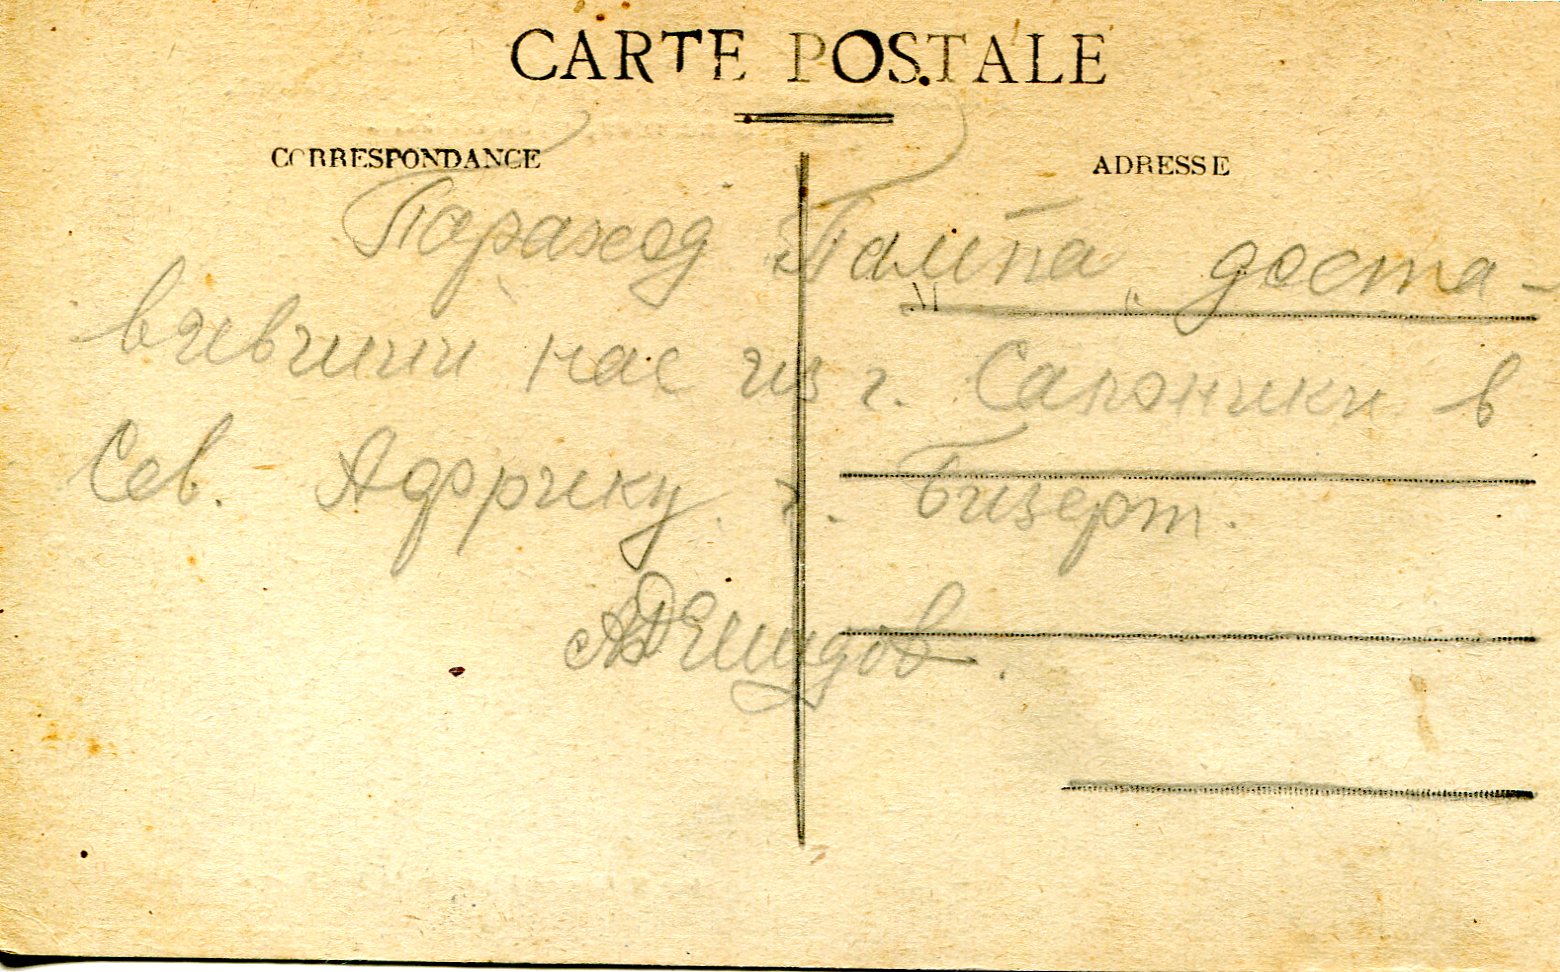 CARTE POSTALE
CORRESPONDANCE
ADRESSE
Параход „Пампа“ доста-
вившии нас из г. Салоники в
Сев. Африку г. Бизерт.
М
АДемидов.